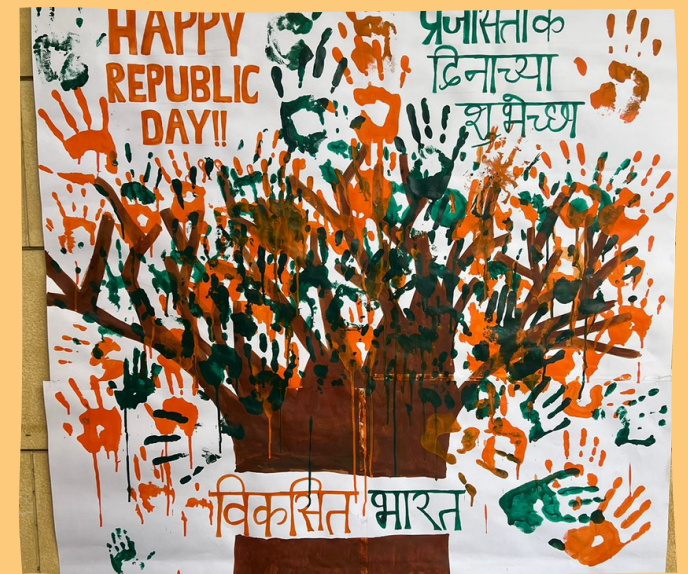 HAPPY
REPUBLIC
DAY!!
प्रजासत्ताक
दिनाच्या
शुभेच्छा
विकसित भारत